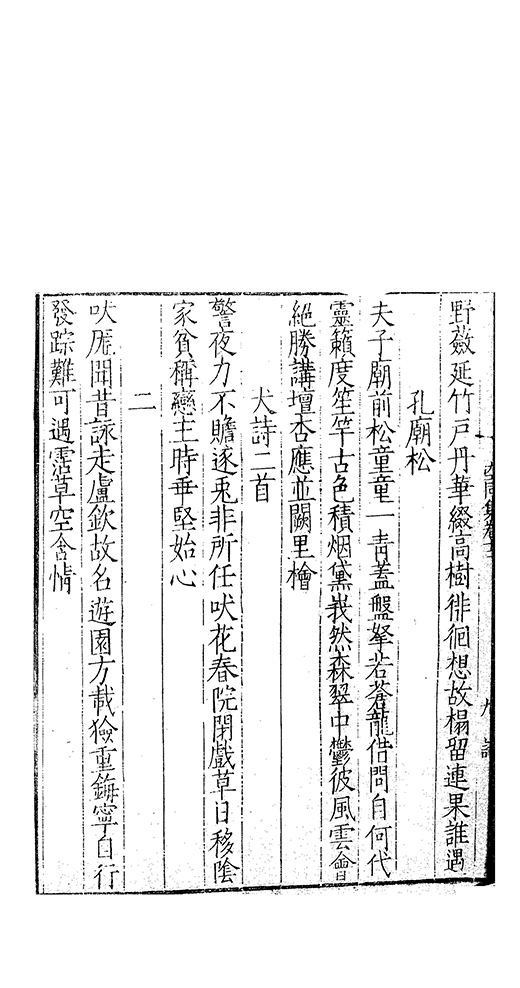 野薇延竹戸丹華綴高樹徘徊想故榻留連果誰遇
孔廟松
夫子廟前松童童一青蓋盤拏若蒼龍借問自何代
靈籟度笙竽古色積烟黛峩然森翠中鬱彼風雲會
絕勝講壇杏應並闕里檜
犬詩二首
警夜力不贍逐兎非所任吠花春院閉戲草日移陰
家貧稱戀主時乖堅始心
二
吠厖聞昔詠走盧欽故名遊園方載獫重鋂寧自行
發踪難可遇霑草空含情